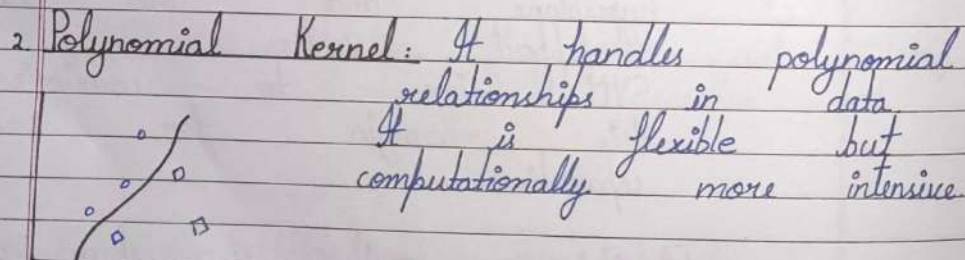 2. Polynomial Kernel: It handles polynomial
relationships in data.
It is flexible but
computationally more intensive